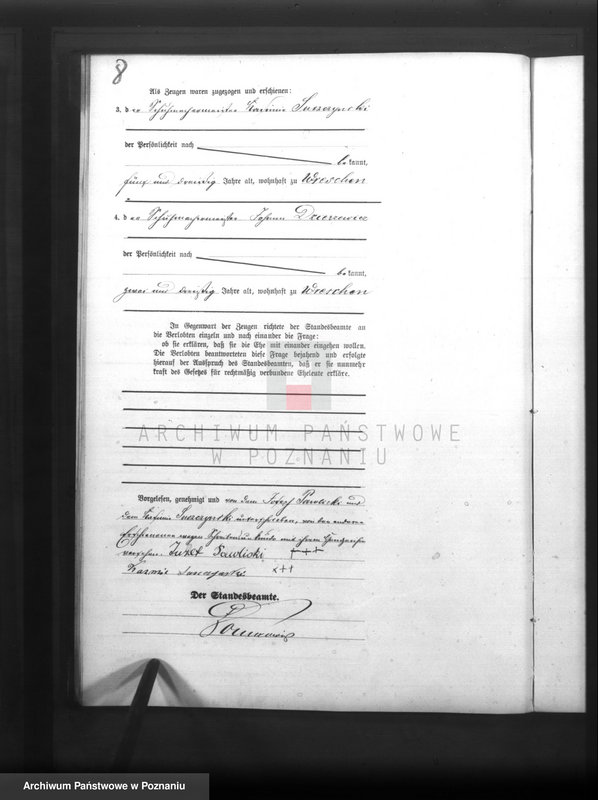 8
Als Zeugen waren zugezogen und erschienen:
3. der Schuhmachermeister Kasimir Suszczynski
der Persönlichkeit nach
bekannt,
fünf und dreißig Jahre alt, wohnhaft zu Wreschen
4. der Schuhmachermeister Johann
der Persönlichkeit nach
bekannt,
zwei und dreißig Jahre alt, wohnhaft zu Wreschen
In Gegenwart der Zeugen richtete der Standesbeamte an
die Verlobten einzeln und nach einander die Frage:
ob sie erklären, daß sie die Ehe mit einander eingehen wollen.
Die Verlobten beantworteten diese Frage bejahend und erfolgte
hierauf der Ausspruch des Standesbeamten, daß er sie nunmehr
kraft des Gesetzes für rechtmäßig verbundene Eheleute erkläre.
ARCHIWUM PAŃSTWOWE
W POZNANIU
Vorgelesen, genehmigt und von dem Josef Pawlicki und
dem Kasimir Suszczynski unterschrieben, von den anderen
Erschienenen wegen Schreibensunkunde mit ihrem Handzeichen
versehen. Juzef Pawlicki +++
+++
Der Standesbeamte.
Archiwum Państwowe w Poznaniu